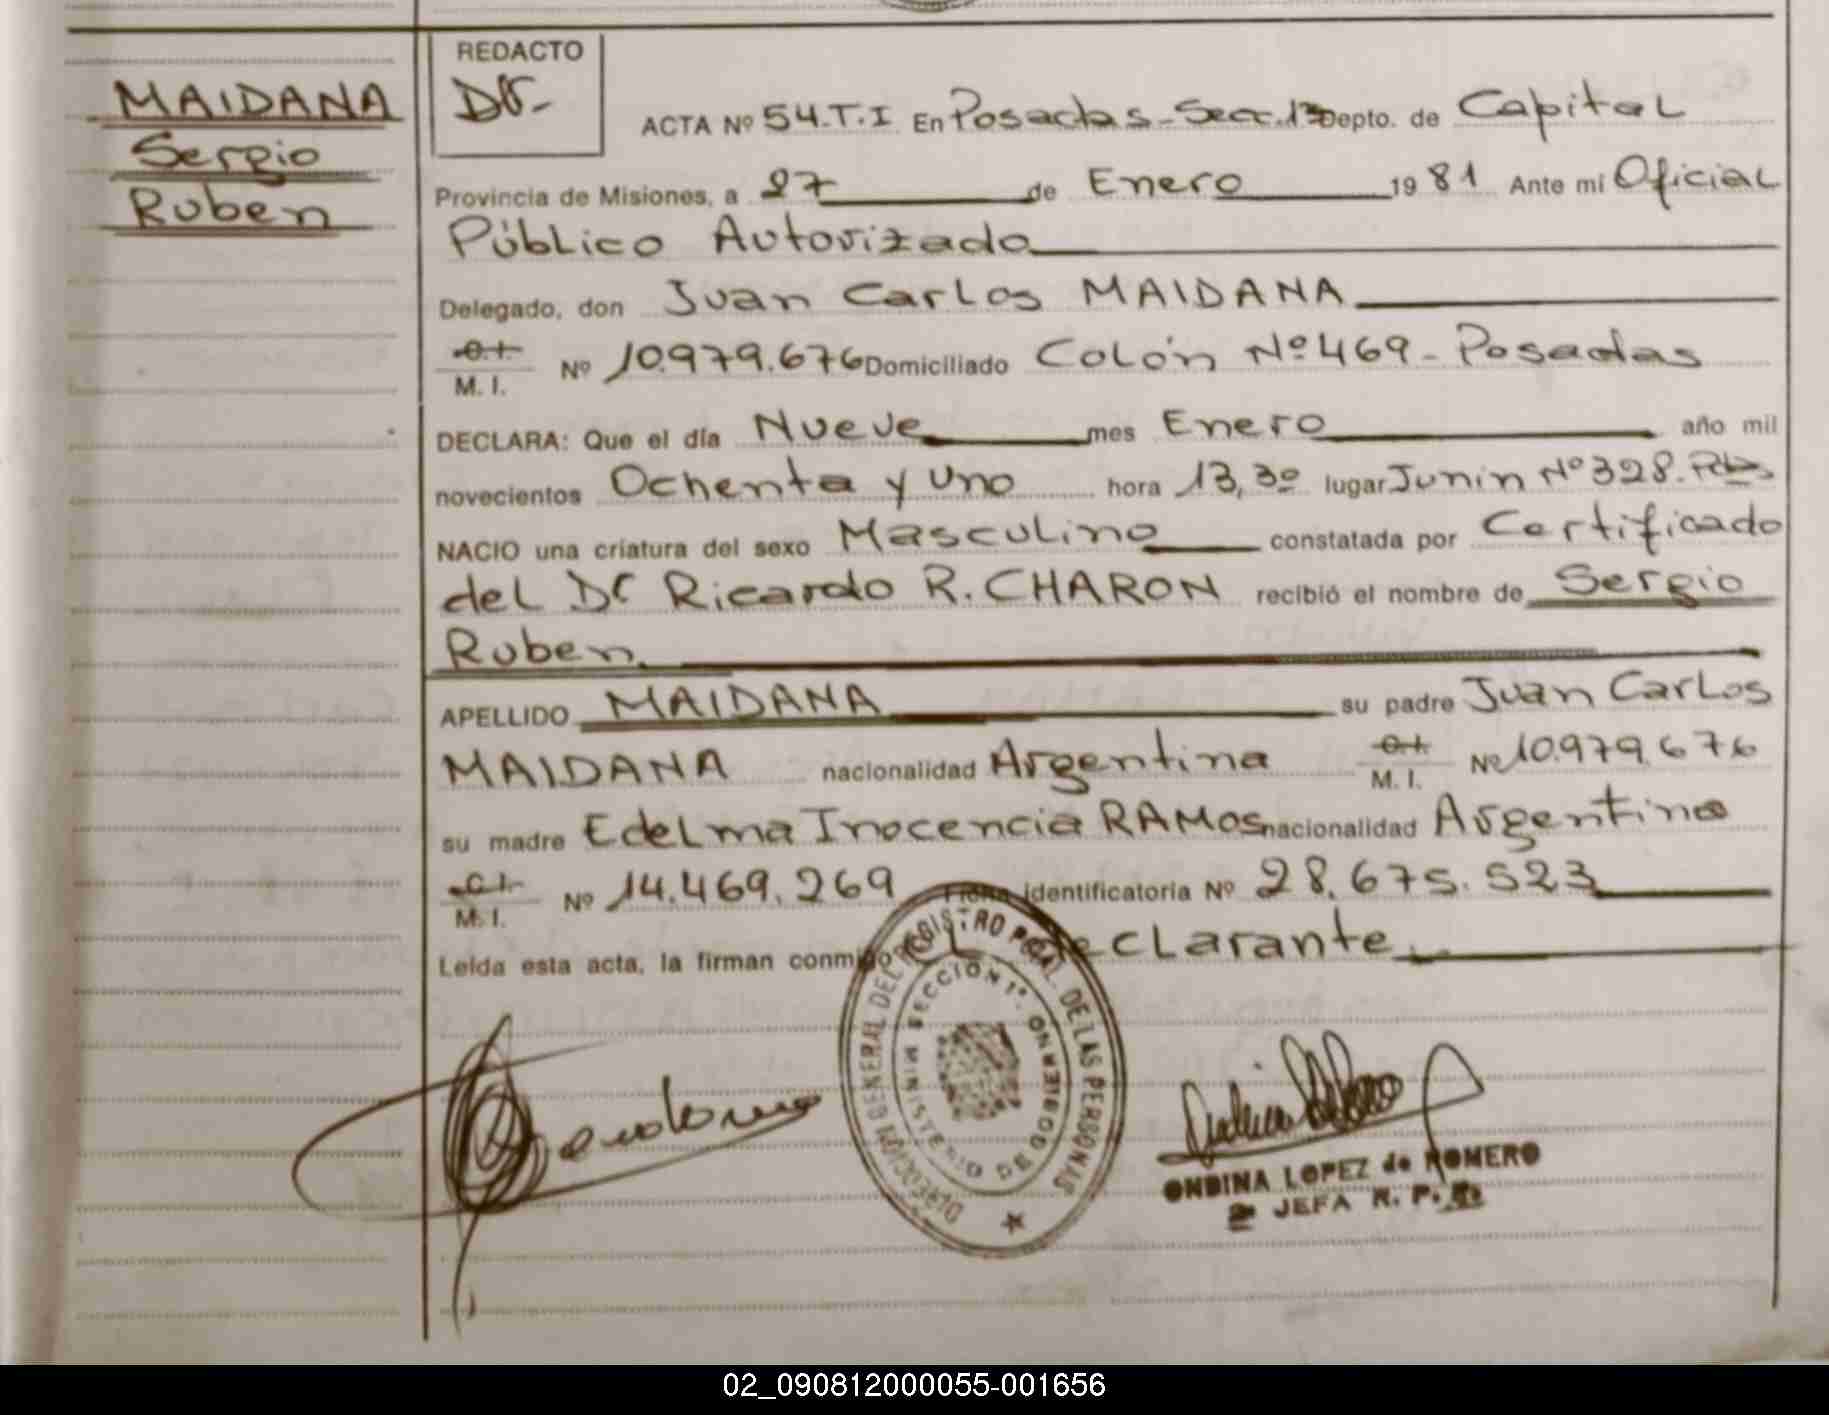 MAIDANA
Sergio
Ruben
REDACTO
ACTA Nº 54.T.I En Posadas-Secc.1ª Depto. de Capital
Provincia de Misiones, a 27 de Enero 1981 Ante mí Oficial
Público Autorizado
Delegado, don Juan Carlos MAIDANA
C.I. M. I. Nº 10.979.676 Domiciliado Colón Nº 469- Posadas
DECLARA: Que el día Nueve mes Enero año mil
novecientos Ochenta y Uno hora 13,30 lugar Junin Nº 328.
NACIO una criatura del sexo Masculino constatada por Certificado
del Dr Ricardo R. CHARON recibió el nombre de Sergio
Ruben
APELLIDO MAIDANA su padre Juan Carlos
MAIDANA nacionalidad Argentina C.I. M. I. Nº 10.979.676
su madre Edelma Inocencia RAMOS nacionalidad Argentina
C.I. M. I. Nº 14.469.269 Ficha identificatoria Nº 28.675.523
Leída esta acta, la firman conmigo el declarante.
DIRECCION GENERAL DEL REGISTRO PCIAL. DE LAS PERSONAS
SECCION 1ª. MINISTERIO DE GOBIERNO
ONDINA LOPEZ de ROMERO
JEFA R. P.
02_090812000055-001656